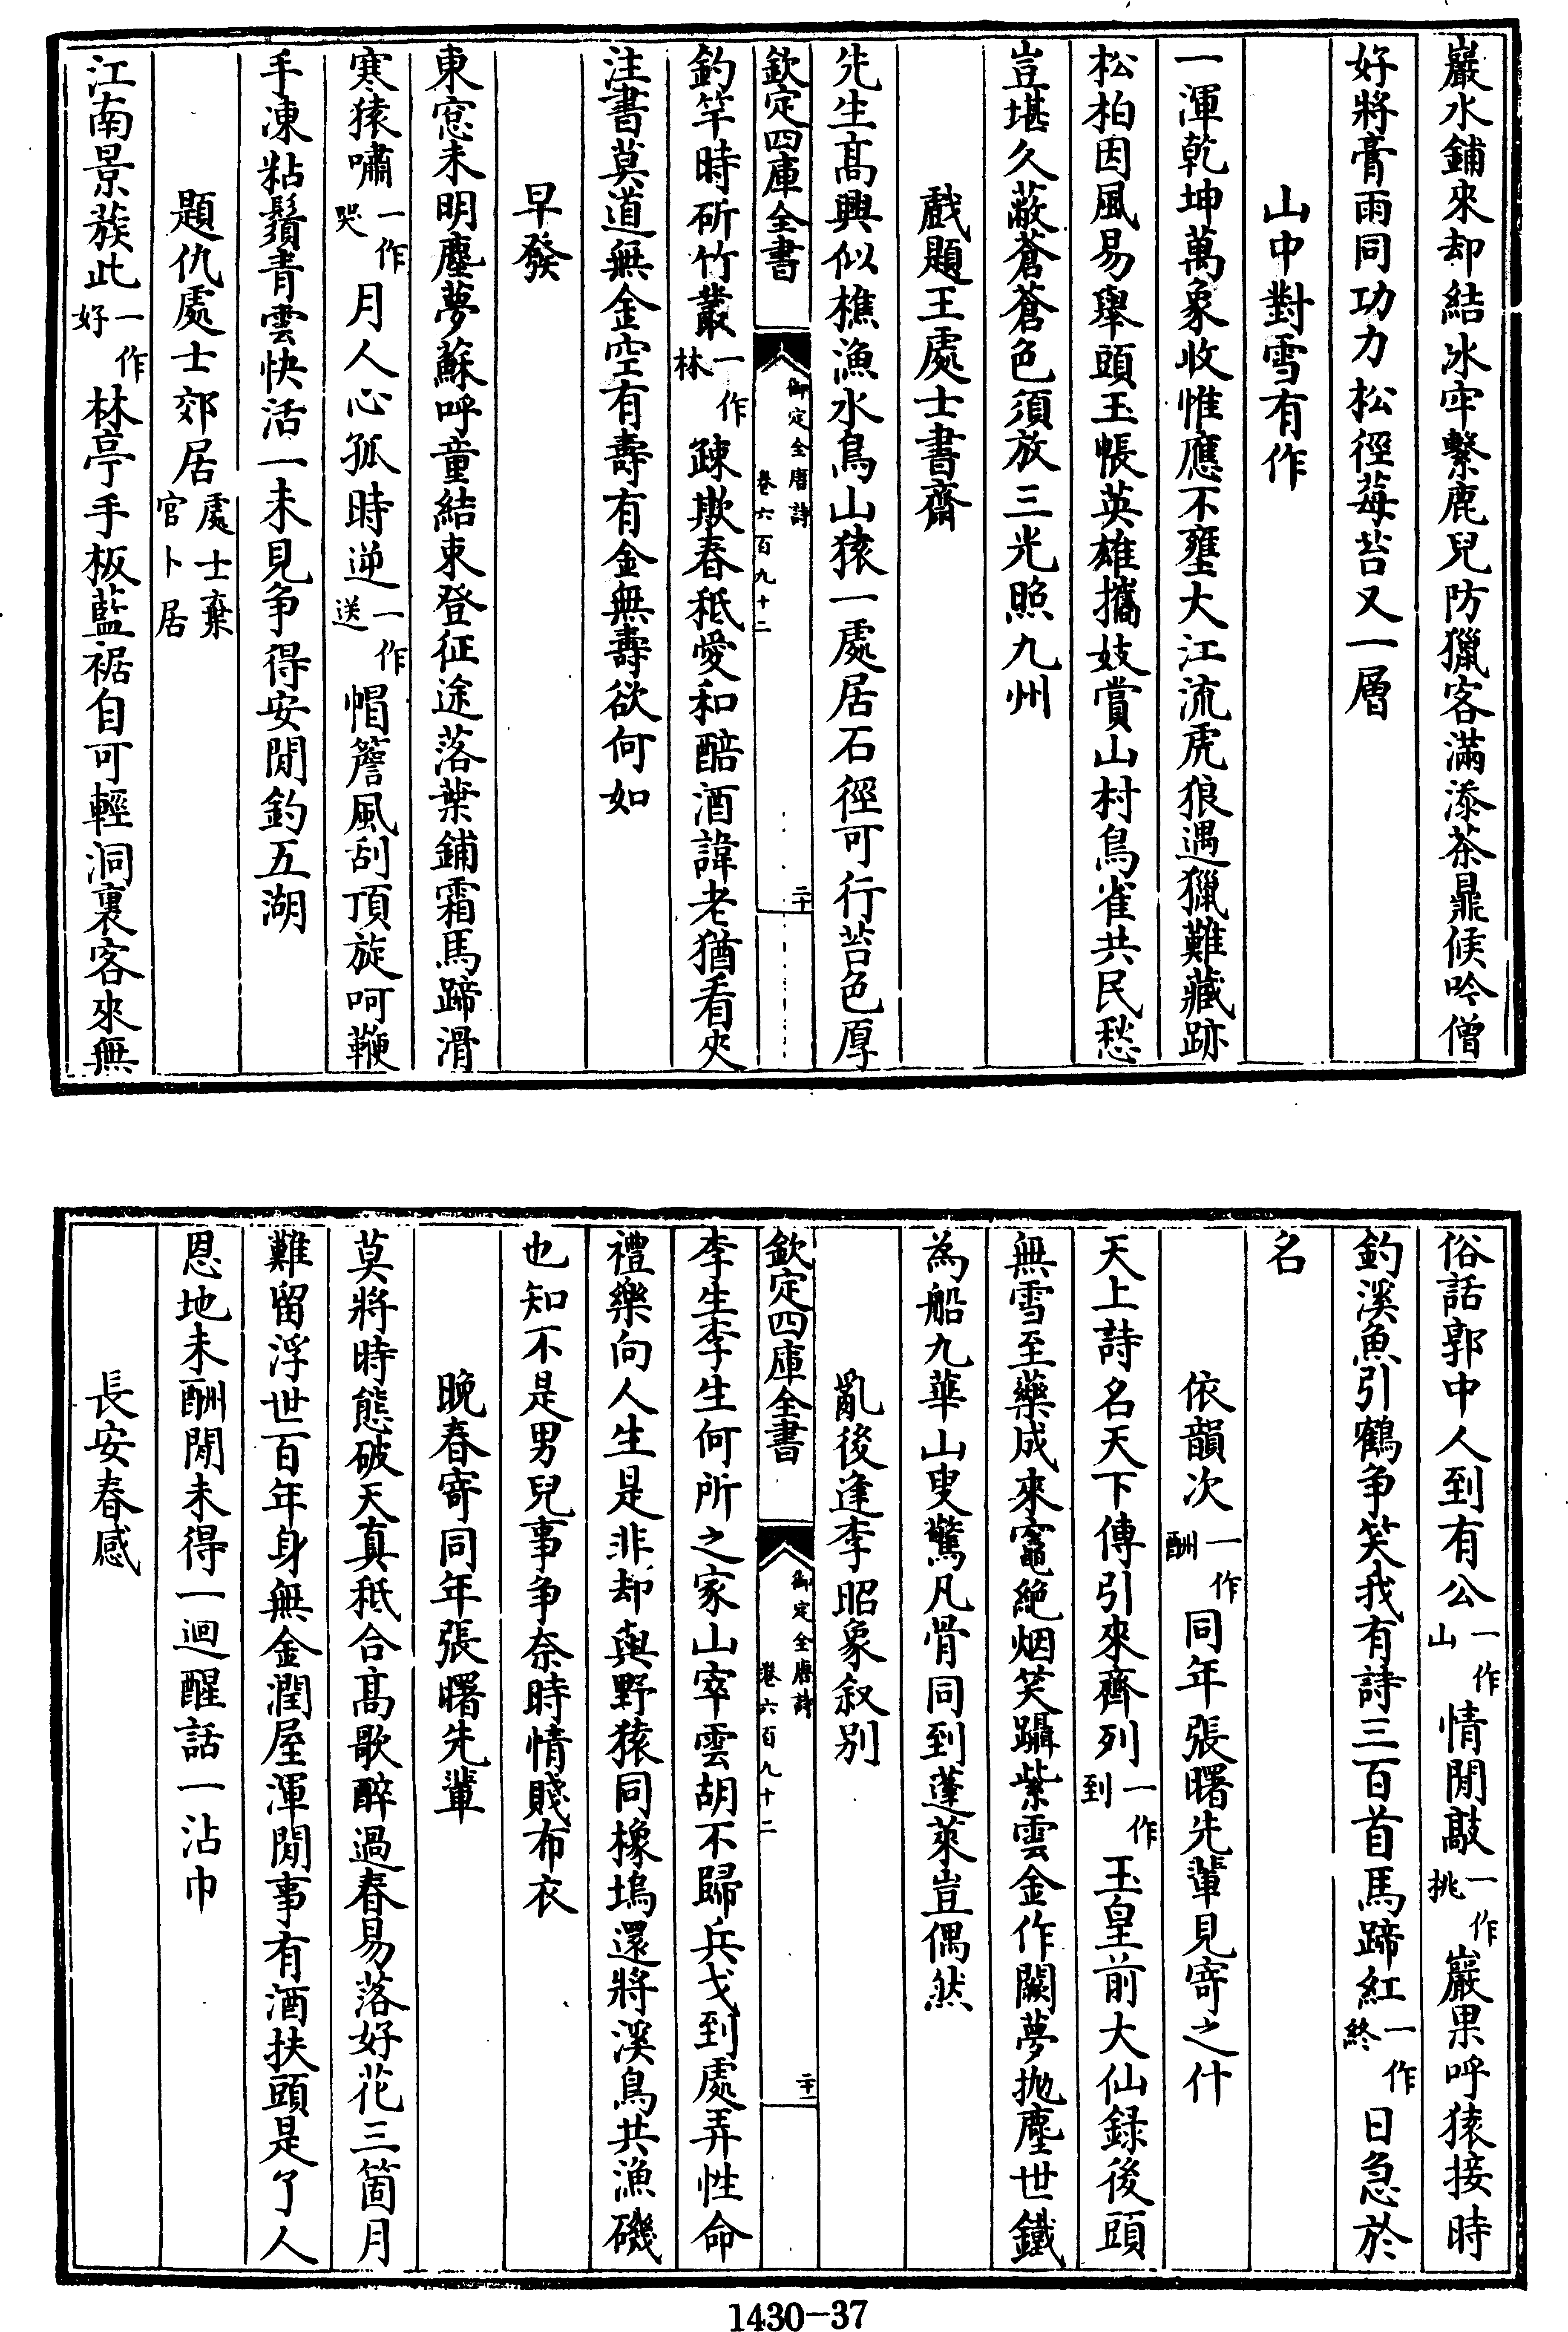 巖水鋪來却結冰牢繫鹿兒防獵客滿添茶鼎候吟僧
好將膏雨同功力松徑莓苔又一層
山中對雪有作
一渾乾坤萬象收惟應不壅大江流虎狼遇獵難藏跡
松柏因風易舉頭玉帳英雄攜妓賞山村鳥雀共民愁
豈堪久蔽蒼蒼色須放三光照九州
戲題王處士書齋
先生高興似樵漁水鳥山猿一處居石徑可行苔色厚
欽定四庫全書 御定全唐詩 卷六百九十二 二十
釣竿時斫竹叢一作林疎欺春秪愛和醅酒諱老猶看夾
注書莫道無金空有壽有金無壽欲何如
早發
東窓未明塵夢蘇呼童結束登征途落葉鋪霜馬蹄滑
寒猿嘯一作哭月人心孤時逆一作送帽簷風刮頂旋呵鞭
手凍粘鬚青雲快活一未見争得安閒釣五湖
題仇處士郊居處士棄官卜居
江南景蔟此一作好林亭手板藍裾自可輕洞裏客來無
俗話郭中人到有公一作山情閒敲一作挑巖果呼猿接時
釣溪魚引鶴争笑我有詩三百首馬蹄紅一作終日急於
名
依韻次一作酬同年張曙先輩見寄之什
天上詩名天下傳引來齊列一作到玉皇前大仙録後頭
無雪至藥成來竈絶烟笑躡紫雲金作闕夢抛塵世鐵
為船九華山叟驚凡骨同到蓬萊豈偶然
亂後逢李昭象叙别
欽定四庫全書 御定全唐詩 卷六百九十二 二十一
李生李生何所之家山窣雲胡不歸兵戈到處弄性命
禮樂向人生是非却與野猿同橡塢還將溪鳥共漁磯
也知不是男兒事争奈時情賤布衣
晚春寄同年張曙先輩
莫將時態破天真秪合高歌醉過春易落好花三箇月
難留浮世百年身無金潤屋渾閒事有酒扶頭是了人
恩地未酬閒未得一迴醒話一沾巾
長安春感
1430-37